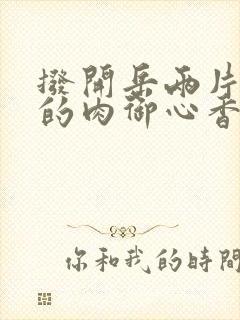 撥開岳兩片
的肉御心香
你和我的時間